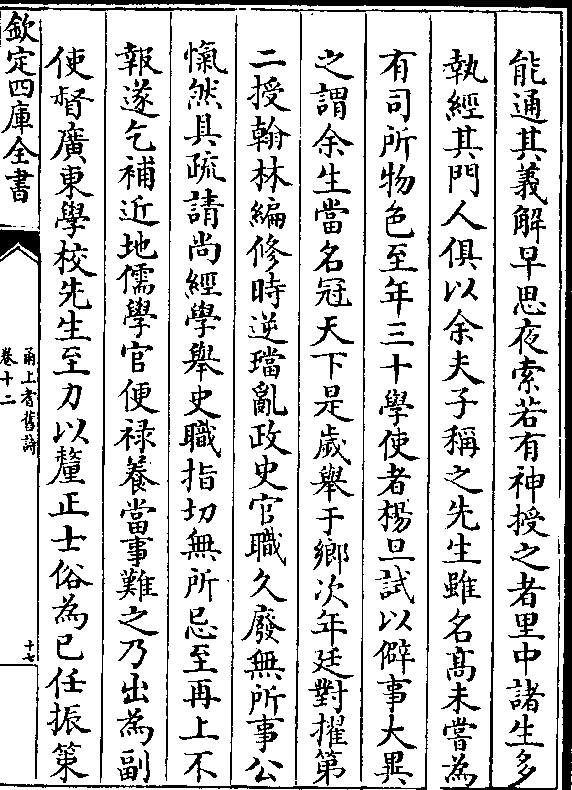 能通其義解早思夜索若有神授之者里中諸生多
執經其門人俱以余夫子稱之先生雖名髙未嘗為
有司所物色至年三十學使者楊旦試以僻事大異
之謂余生當名冠天下是歲舉于鄉次年廷對擢第
二授翰林編修時逆璫亂政史官職久廢無所事公
愾然具疏請尚經學舉史職指切無所忌至再上不
報遂乞補近地儒學官便禄養當事難之乃出為副
使督廣東學校先生至力以釐正士俗為已任振策
欽定四庫全書
甬上耆舊詩
卷十二
十七